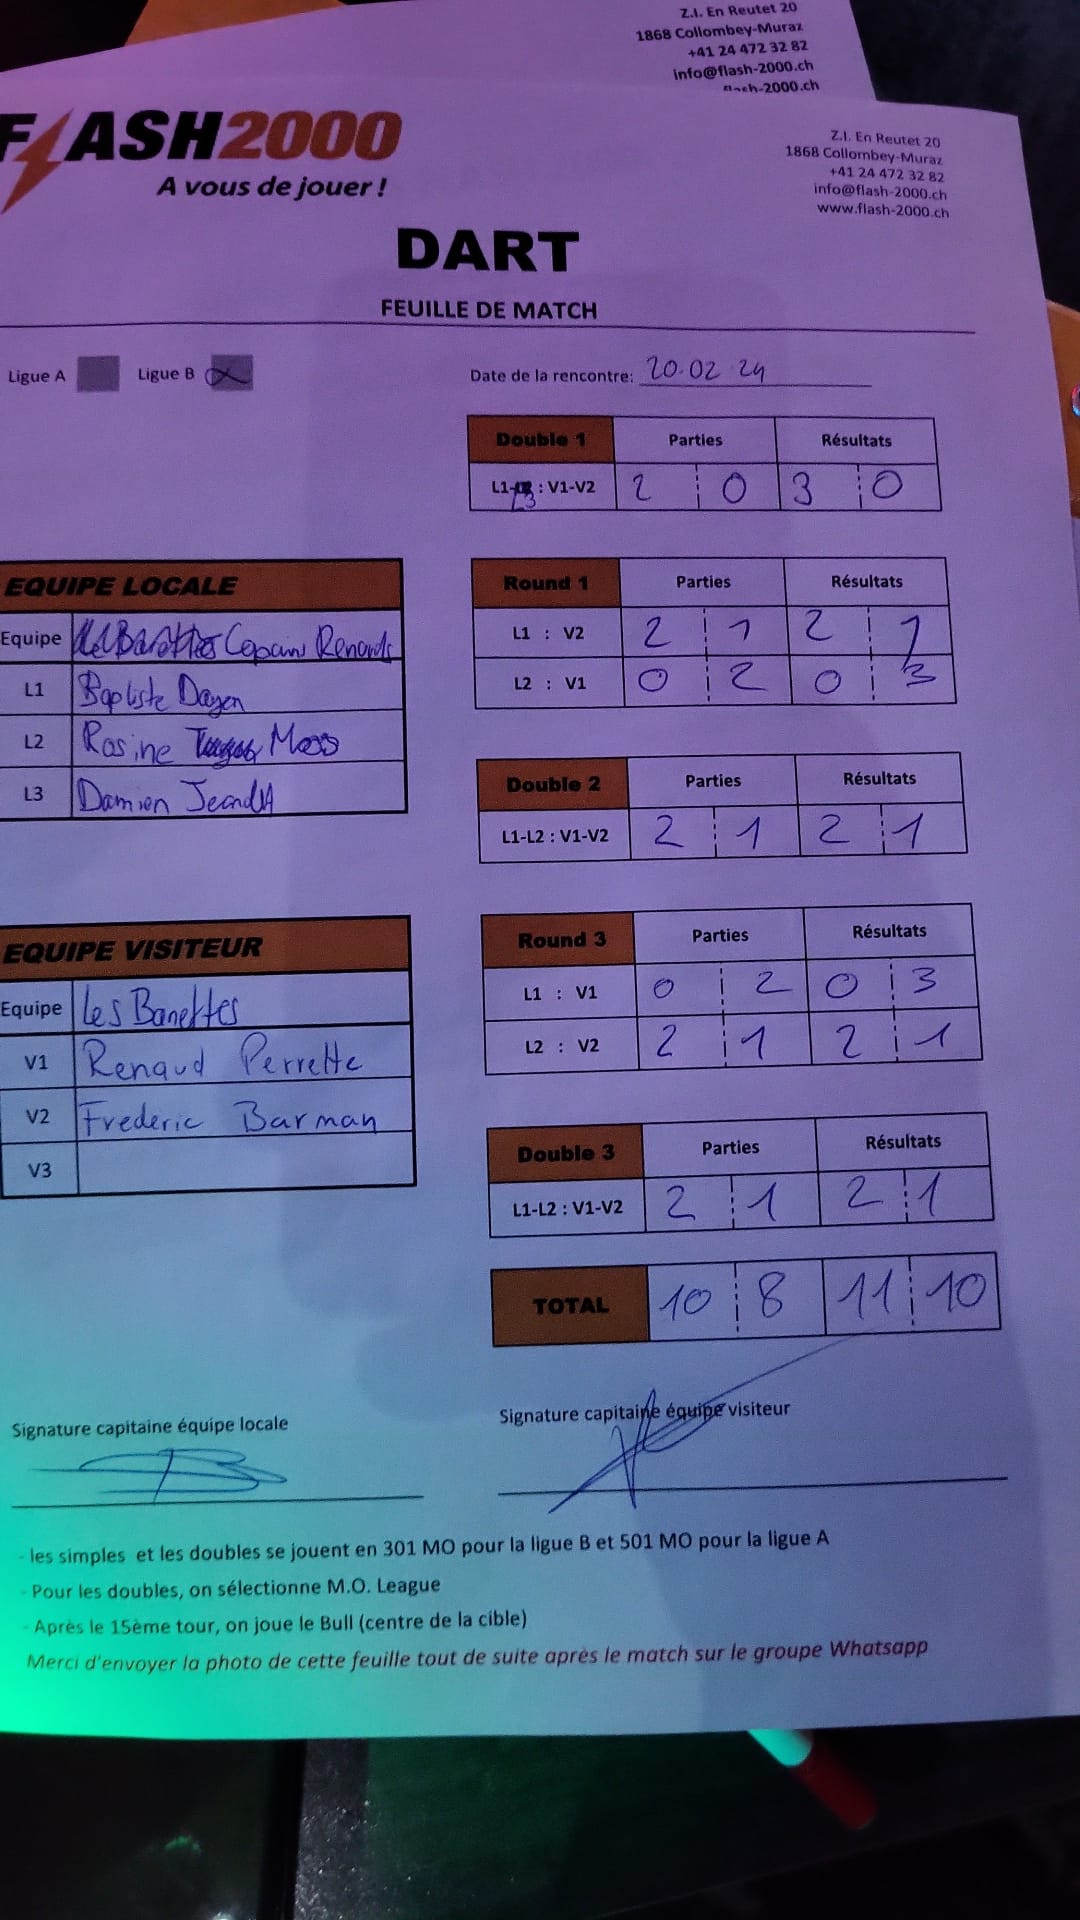 Z.I. En Reutet 20
1868 Collombey-Muraz
+41 24 472 32 82
info@flash-2000.ch
flash-2000.ch
FLASH2000
A vous de jouer !
Z.I. En Reutet 20
1868 Collombey-Muraz
+41 24 472 32 82
info@flash-2000.ch
www.flash-2000.ch
DART
FEUILLE DE MATCH
Ligue A Ligue B X
Date de la rencontre: 20.02 24
Double 1 Parties Résultats
L1-L3 : V1-V2 2 0 3 0
EQUIPE LOCALE
Equipe Copains Renards
L1 Baptiste Dayen
L2 Rosine Moos
L3 Damien
Round 1 Parties Résultats
L1 : V2 2 1 2 1
L2 : V1 0 2 0 3
Double 2 Parties Résultats
L1-L2 : V1-V2 2 1 2 1
EQUIPE VISITEUR
Equipe Les Banettes
V1 Renaud Perrette
V2 Frederic Barman
V3
Round 3 Parties Résultats
L1 : V1 0 2 0 3
L2 : V2 2 1 2 1
Double 3 Parties Résultats
L1-L2 : V1-V2 2 1 2 1
TOTAL 10 8 11 10
Signature capitaine équipe locale
Signature capitaine équipe visiteur
- les simples et les doubles se jouent en 301 MO pour la ligue B et 501 MO pour la ligue A
- Pour les doubles, on sélectionne M.O. League
- Après le 15ème tour, on joue le Bull (centre de la cible)
Merci d'envoyer la photo de cette feuille tout de suite après le match sur le groupe Whatsapp